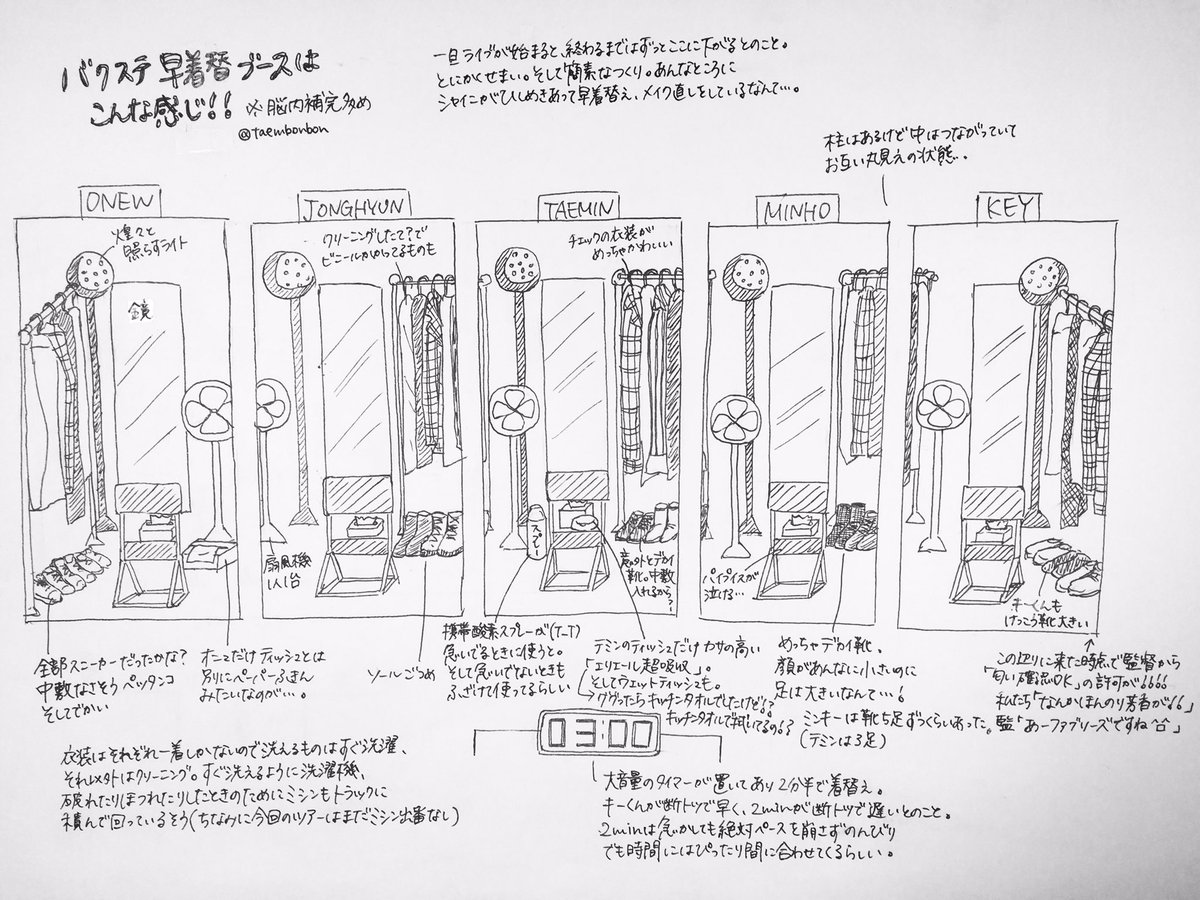 バクステ早着替ブースは
こんな感じ!! ※脳内補完多め
@taembonbon
一旦ライブが始まると、終わるまではずっとここに下がるとのこと。
とにかくせまい。そして簡素なつくり。あんなところに
シャイニがひしめきあって早着替え、メイク直しをしているなんて…。
柱はあるけど中はつながっていて
お互い丸見えの状態..
ONEW
煌々と
照らすライト
鏡
全部スニーカーだったかな?
中敷なさそう ペッタンコ
そしてでかい
オニュだけティッシュとは
別にペーパーふきん
みたいなのが…。
JONGHYUN
クリーニングしたて?で
ビニールかかってるものも
扇風機
1人1台
ソールごつめ
TAEMIN
チェックの衣装が
めっちゃかわいい
スプレー
意外とデカイ
靴。中敷
入れるから?
携帯酸素スプレーが(T-T)
急いでるときに使うと。
そして急いでないときも
ふざけて使ってるらしい
テミンのティッシュだけカサの高い
「エリエール超吸収」。
そしてウェットティッシュも。
→ググったらキッチンタオルでしたけど!?
キッチンタオルで拭いてるの!?
MINHO
パイプイスが
泣ける…
めっちゃデカイ靴。
顔があんなに小さいのに
足は大きいなんて…!
ミンキーは靴5足ずつくらいあった。
(テミンは3足)
KEY
キーくんも
けっこう靴大きい
この辺りに来た時点で監督から
「匂い確認OK」の許可が!!!!
私たち「なんかほんのり芳香が!!」
監「あーファブリーズですね」
03:00
衣装はそれぞれ一着しかないので洗えるものはすぐ洗濯、
それ以外はクリーニング。すぐ洗えるように洗濯機、
破れたりほつれたりしたときのためにミシンもトラックに
積んで回っているそう(ちなみに今回のツアーはまだミシン出番なし)
大音量のタイマーが置いてあり2分半で着替え。
キーくんが断トツで早く、2minが断トツで遅いとのこと。
2minは急かしても絶対ペースを崩さずのんびり
でも時間にはぴったり間に合わせてくるらしい。